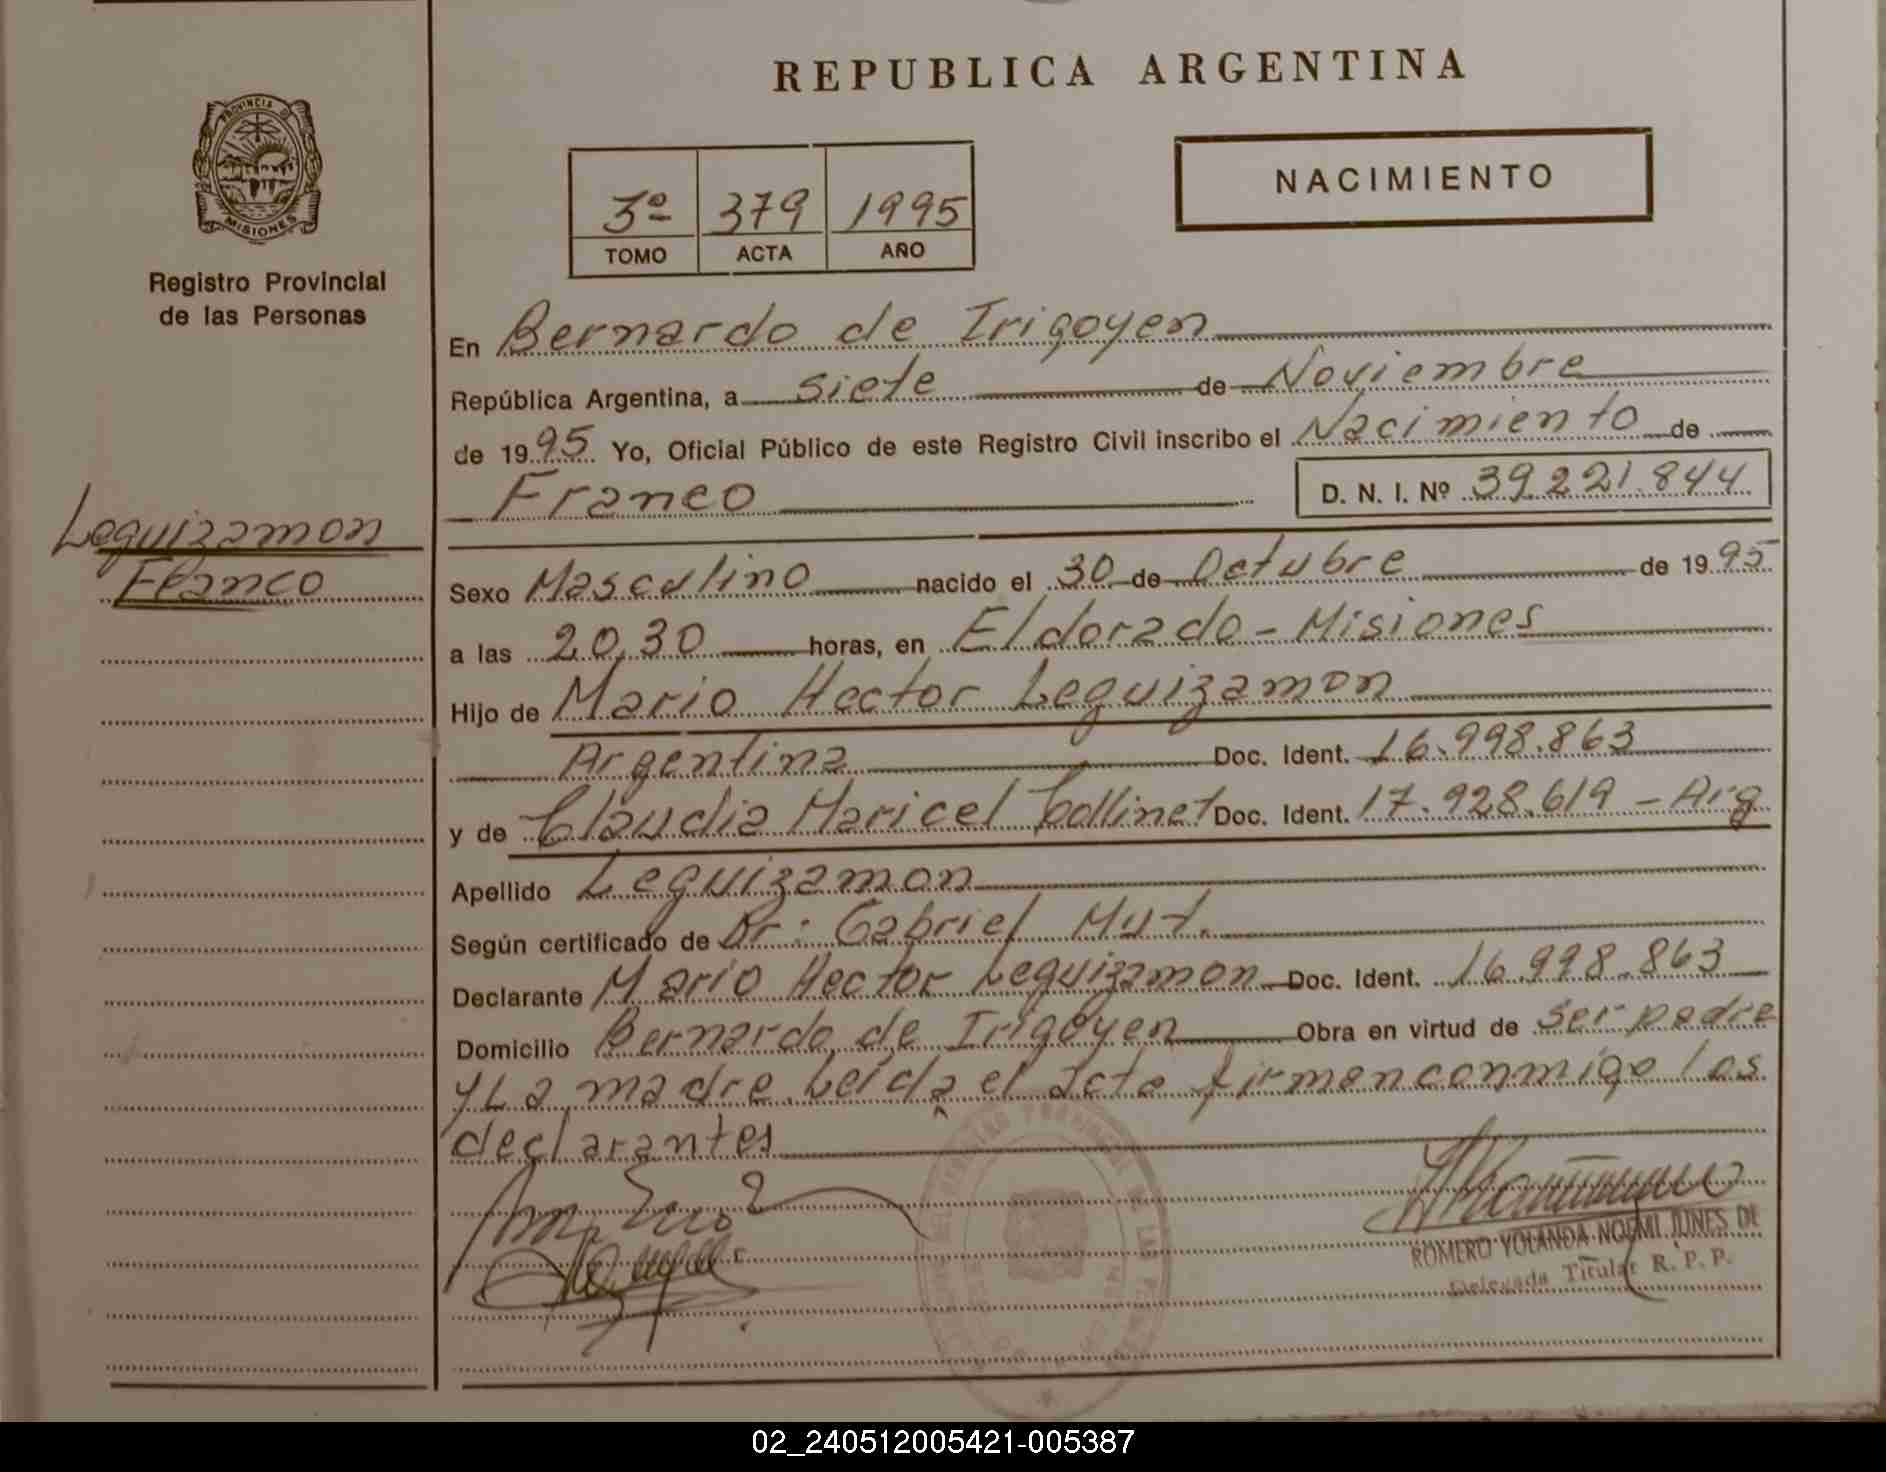 REPUBLICA ARGENTINA
PROVINCIA DE
MISIONES
Registro Provincial
de las Personas
3º 379 1995
TOMO ACTA AÑO
NACIMIENTO
En Bernardo de Irigoyen
República Argentina, a siete de Noviembre
de 1995 Yo, Oficial Público de este Registro Civil inscribo el Nacimiento de
Franco D. N. I. Nº 39.221.844
Leguizamon
Franco
Sexo Masculino nacido el 30 de Octubre de 1995
a las 20,30 horas, en Eldorado - Misiones
Hijo de Mario Hector Leguizamon
Argentina Doc. Ident. 16.998.863
y de Claudia Maricel Collinet Doc. Ident. 17.928.619 - Arg
Apellido Leguizamon
Según certificado de Dr: Gabriel Mut.
Declarante Mario Hector Leguizamon Doc. Ident. 16.998.863
Domicilio Bernardo de Irigoyen Obra en virtud de ser padre
y La madre. Leída el acta firman conmigo los
declarantes
ROMERO YOLANDA NOEMI JUNES DE
Delegada Titular R. P. P.
02_240512005421-005387